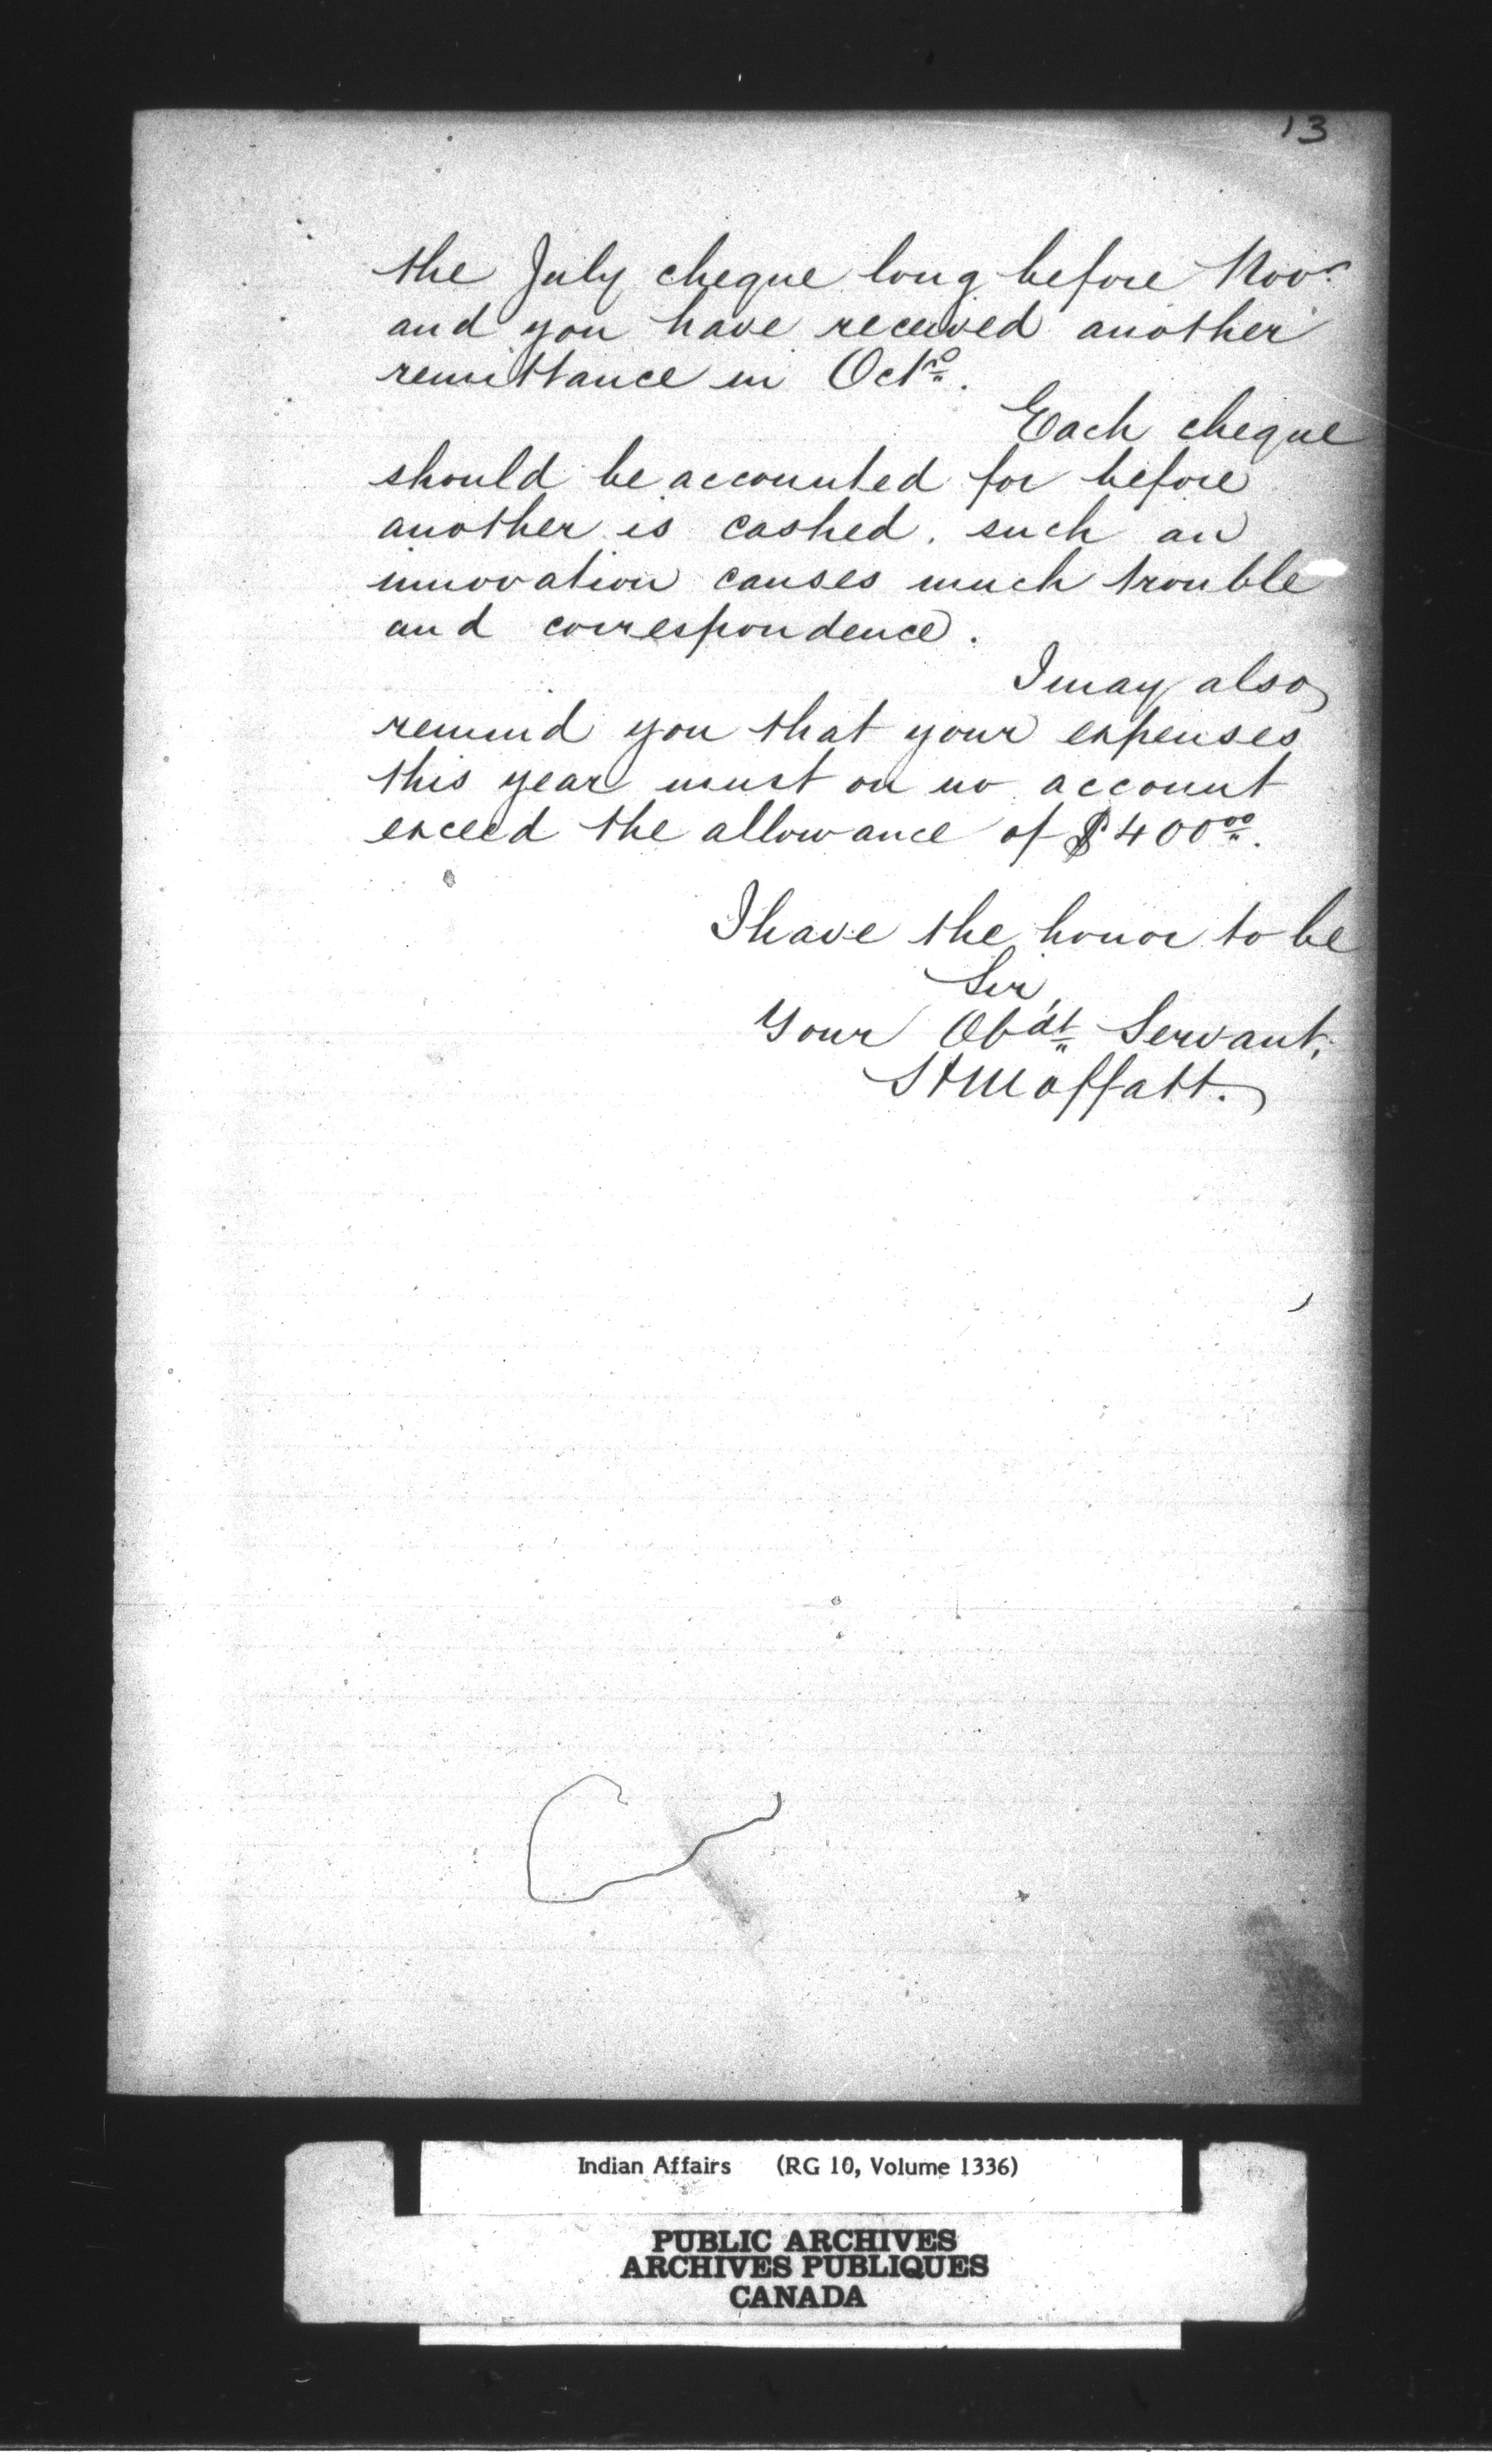 13
the July cheque long before Novr
and you have received another
remittance in Octr.
Each cheque
should be accounted for before
another is cashed. such an
innovation causes much trouble
and correspondence.
I may also
remind you that your expenses
this year must on no account
exceed the allowance of $400 00.
I have the honor to be
Sir,
Your Obdt Servant,
Moffatt.
Indian Affairs (RG 10, Volume 1336)
PUBLIC ARCHIVES
ARCHIVES PUBLIQUES
CANADA